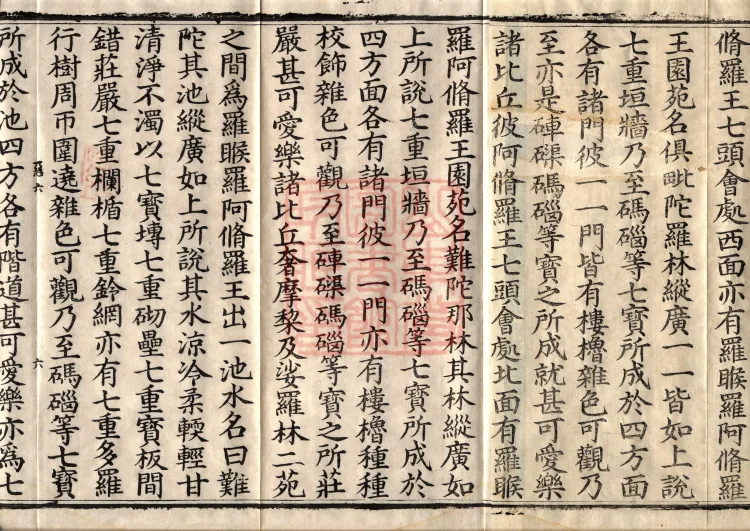 脩羅王七頭㑹處西面亦有羅睺羅阿脩羅
王園苑名俱毗陀羅林縱廣一一皆如上說
七重垣牆乃至碼碯等七寶所成於四方面
各有諸門彼一一門皆有樓櫓雜色可觀乃
至亦是硨磲碼碯等寶之所成就甚可愛樂
諸比丘彼阿脩羅王七頭㑹處北面有羅睺
羅阿脩羅王園苑名難陀那林其林縱廣如
上所說七重垣牆乃至碼碯等七寶所成於
四方面各有諸門彼一一門亦有樓櫓種種
校飾雜色可觀乃至硨磲碼碯等寶之所莊
嚴甚可愛樂諸比丘奢摩黎及娑羅林二苑
之間為羅睺羅阿脩羅王出一池水名曰難
陀其池縱廣如上所說其水涼冷柔輭輕甘
清淨不濁以七寶塼七重砌壘七重寶板間
錯莊嚴七重欄楯七重鈴網亦有七重多羅
行樹周帀圍遶雜色可觀乃至碼碯等七寶
六
六
所成於池四方各有階道甚可愛樂亦為七